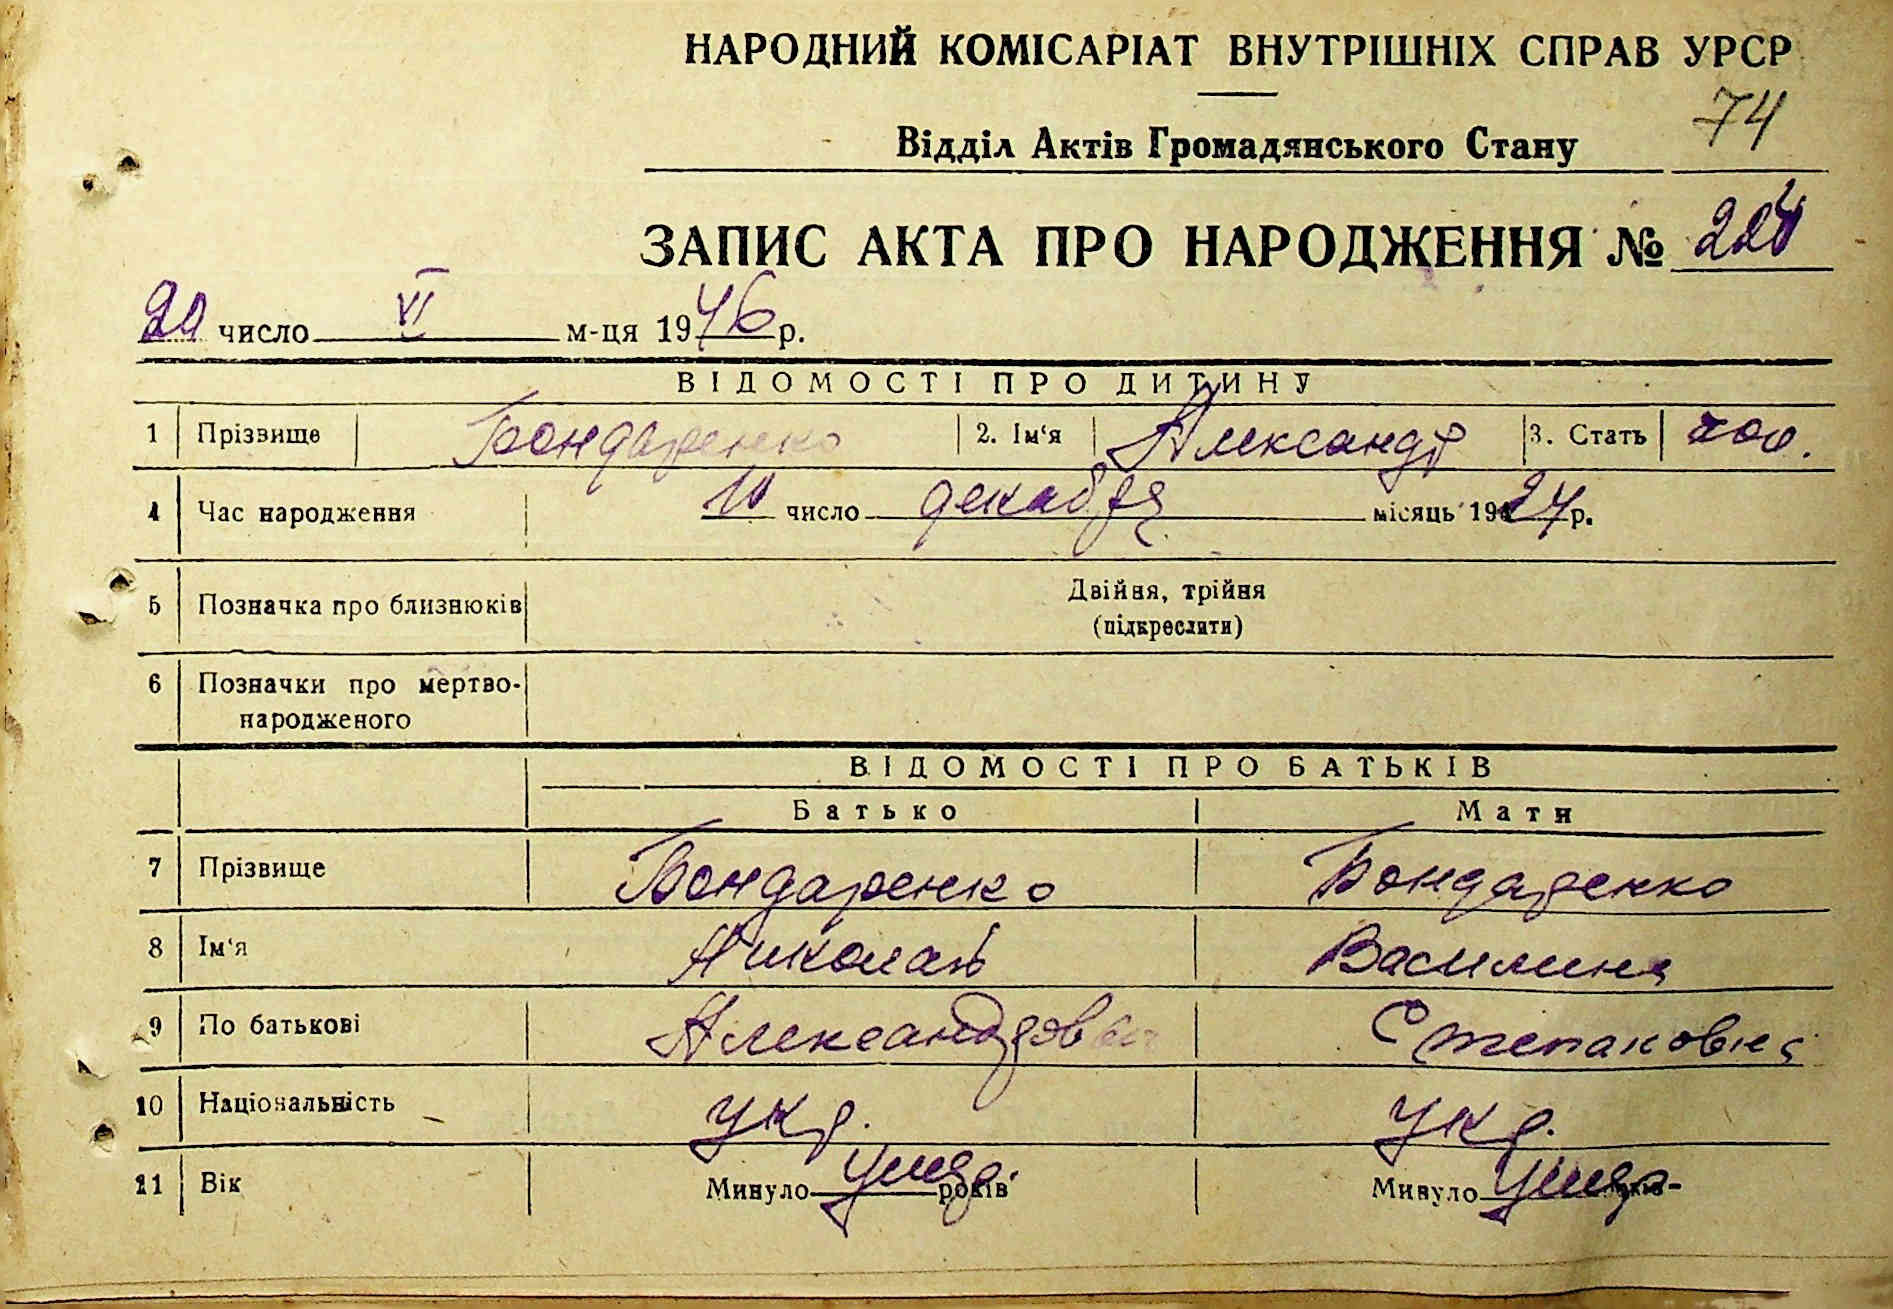 НАРОДНИЙ КОМІСАРІАТ ВНУТРІШНІХ СПРАВ УРСР
74
Відділ Актів Громадянського Стану
ЗАПИС АКТА ПРО НАРОДЖЕННЯ №
число VI м-ця 1946 р.
ВІДОМОСТІ ПРО ДИТИНУ
1 Прізвище Бондаренко 2. Ім'я Александр 3. Стать чол.
4 Час народження 10 число декабря місяць 1924 р.
5 Позначка про близнюків Двійня, трійня
(підкреслити)
6 Позначки про мертво-
народженого
ВІДОМОСТІ ПРО БАТЬКІВ
Батько Мати
7 Прізвище Бондаренко Бондаренко
8 Ім'я Николай Василина
9 По батькові Александрович Степановна
10 Національність укр. укр.
11 Вік Минуло умер років Минуло